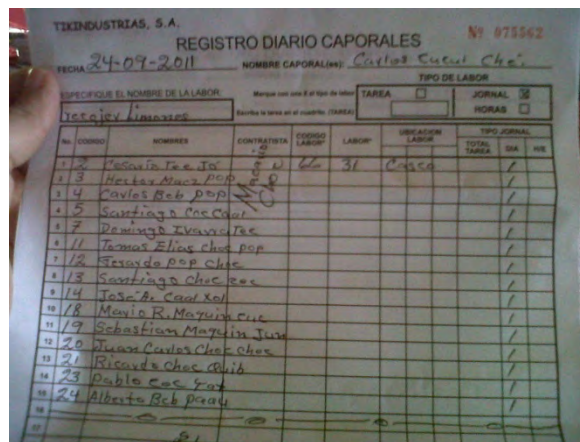 TIKINDUSTRIAS, S.A.
Nº 075562
REGISTRO DIARIO CAPORALES
FECHA 24-09-2011 NOMBRE CAPORAL(es): Carlos Cucul Ché.
TIPO DE LABOR
ESPECIFIQUE EL NOMBRE DE LA LABOR: Marque con una X el tipo de labor TAREA JORNAL X
Limones Escriba la tarea en el cuadrito (TAREA) HORAS
No. CODIGO NOMBRES CONTRATISTA CODIGO LABOR* LABOR* UBICACION LABOR TIPO JORNAL
TOTAL TAREA DIA H/E
1 2 Cesario Tec 31 Casco /
2 3 Hector Maez POP /
3 4 Carlos Beb POP /
4 5 Santiago Coc Caal /
5 7 Domingo Tec /
6 11 Tomas Elias Choc POP /
7 12 Gerardo POP Choc /
8 13 Santiago Choc /
9 14 José A. Caal Xol /
10 18 Mario R. Maquin Cuc /
11 19 Sebastian Maquin Jun /
12 20 Juan Carlos Choc Choc /
13 21 Ricardo Choc /
14 23 Pablo Coc /
15 24 Alberto Beb /
16
17